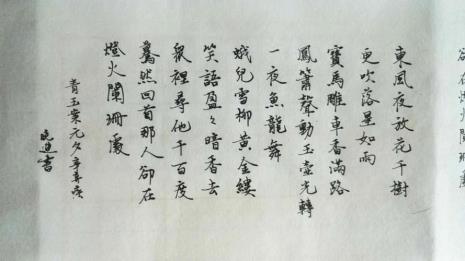 東風夜放花千樹
更吹落星如雨
寶馬雕車香滿路
鳳簫聲動玉壺光轉
一夜魚龍舞
蛾兒雪柳黃金縷
笑語盈々暗香去
眾裡尋他千百度
驀然回首那人卻在
燈火闌珊處
青玉案元夕辛棄疾